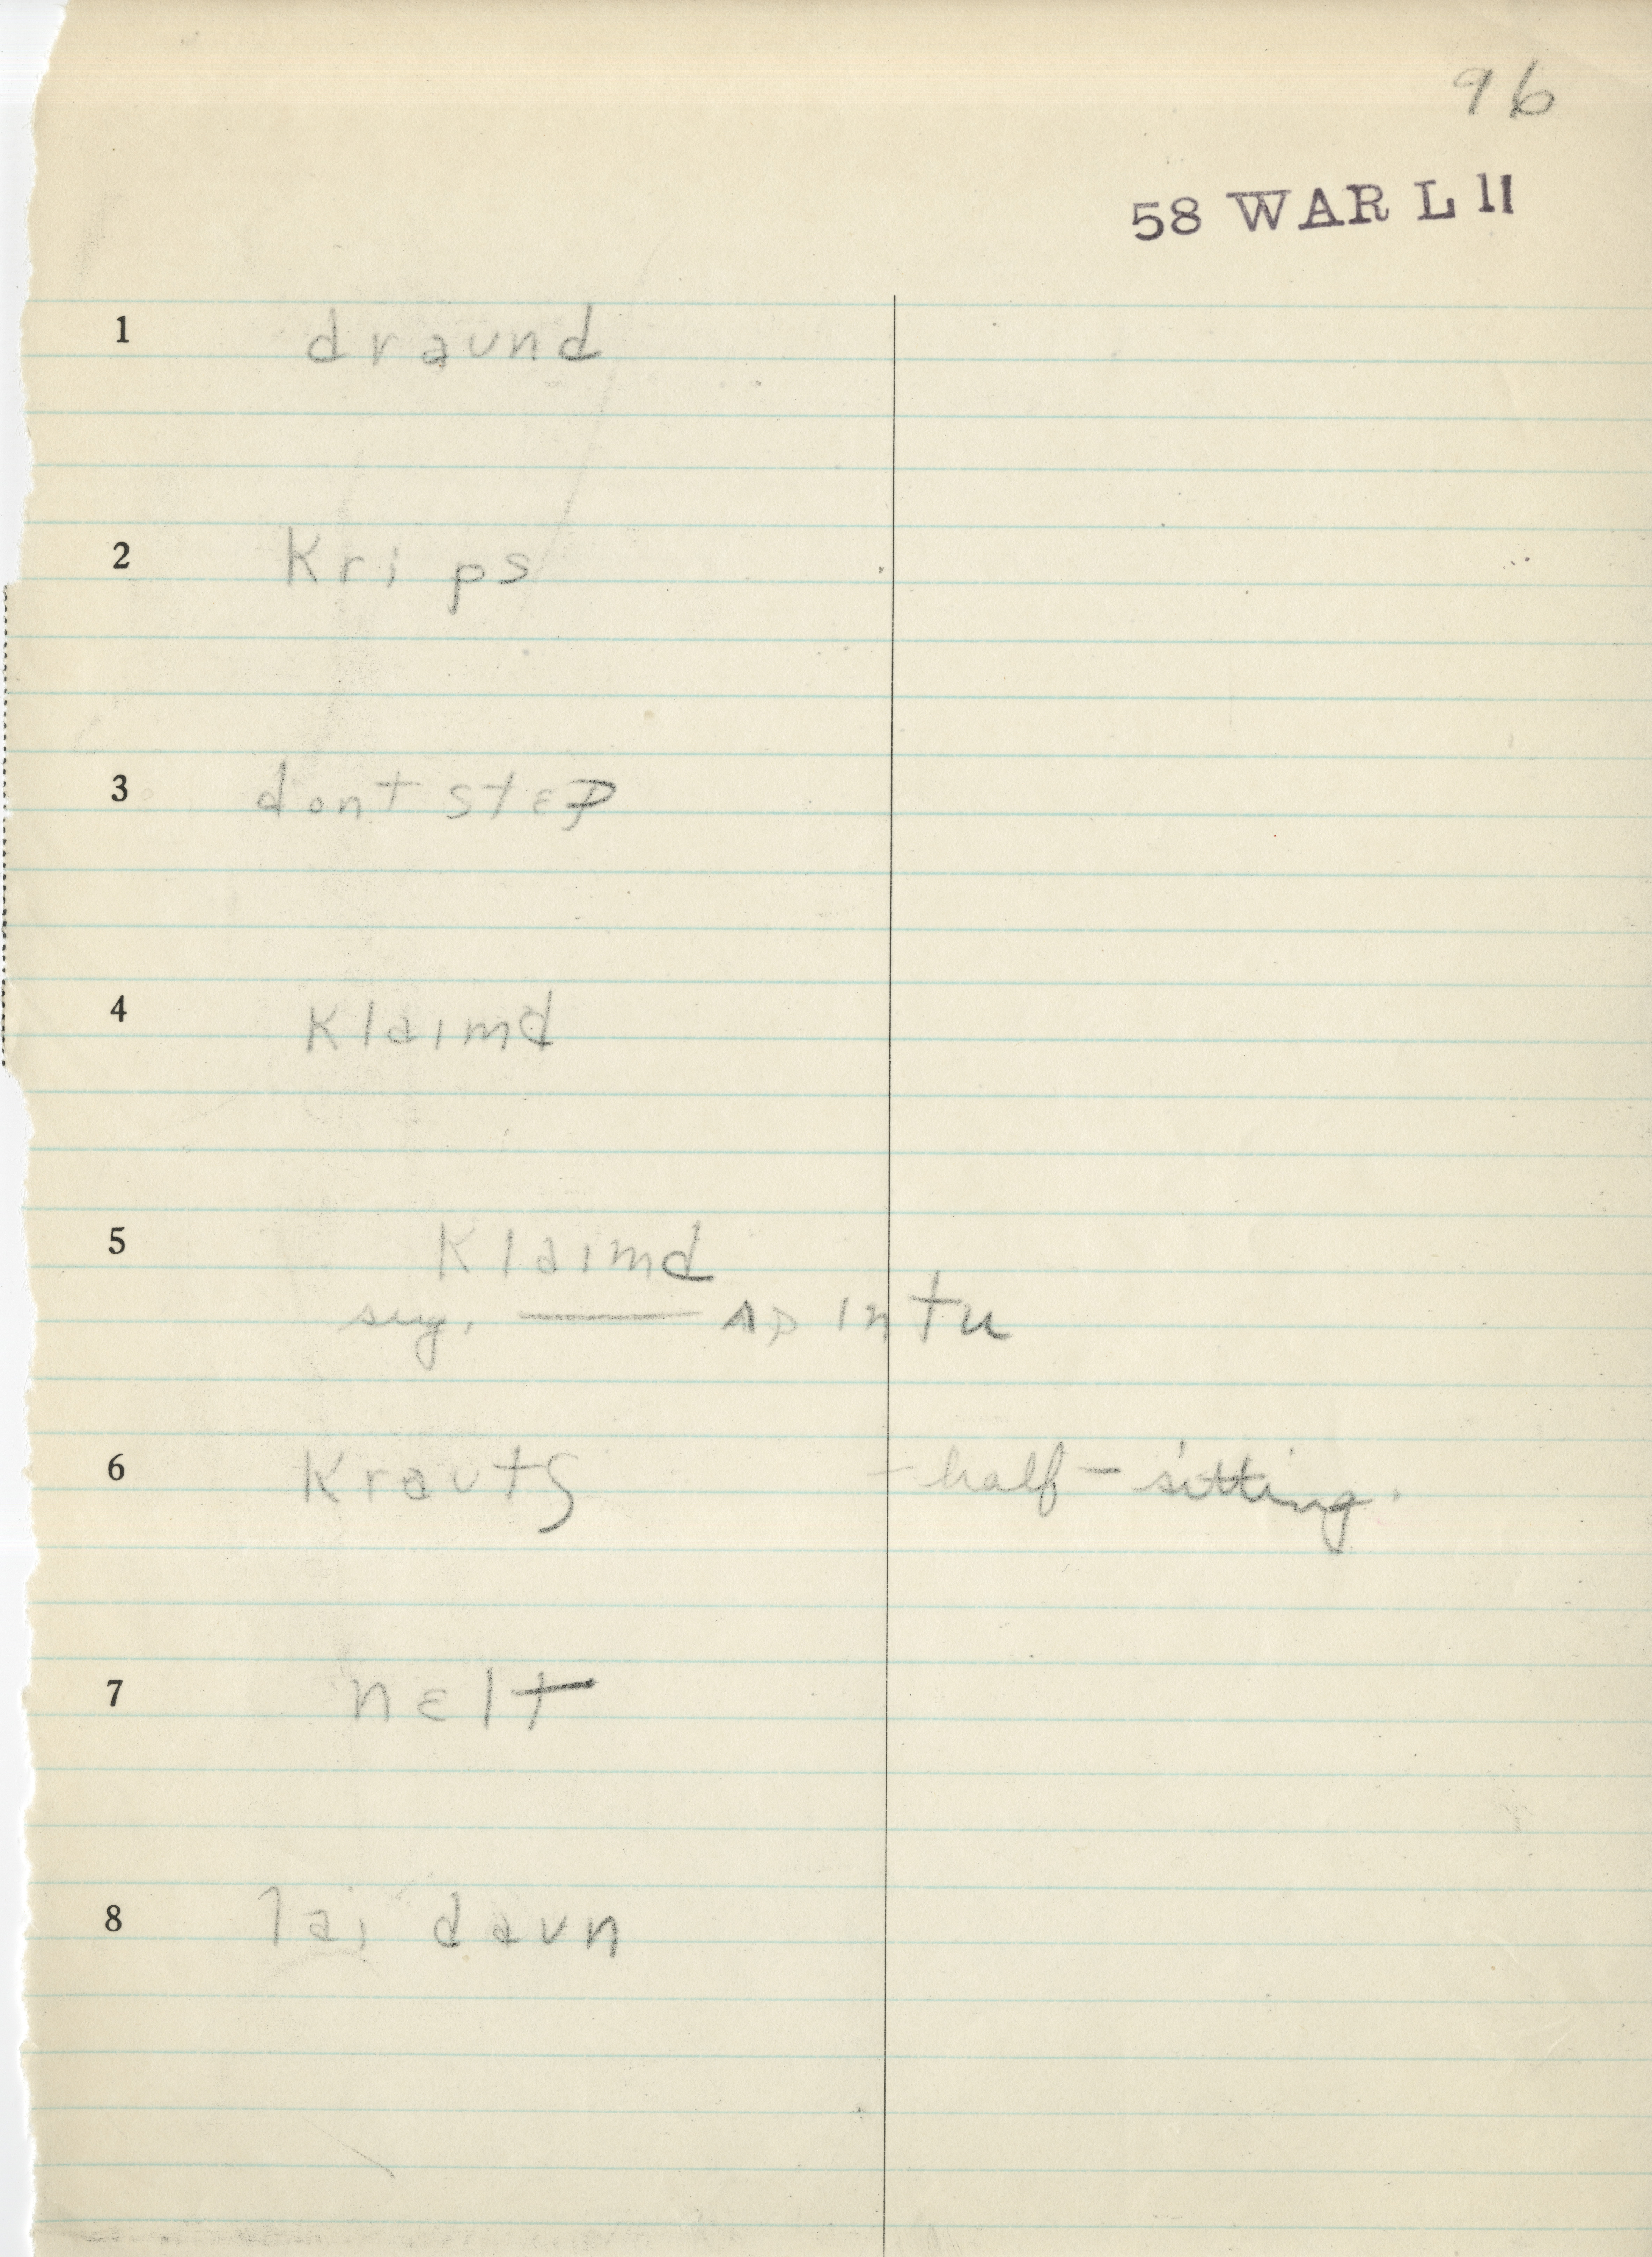 96
58 WAR L 11
1 draʊnd
2 krips
3 dont stɛp
4 klaimd
5 klaimd
sug. —— ʌp ɪntu
6 kraʊtʃ - half-sitting.
7 nɛlt
8 lai daʊn